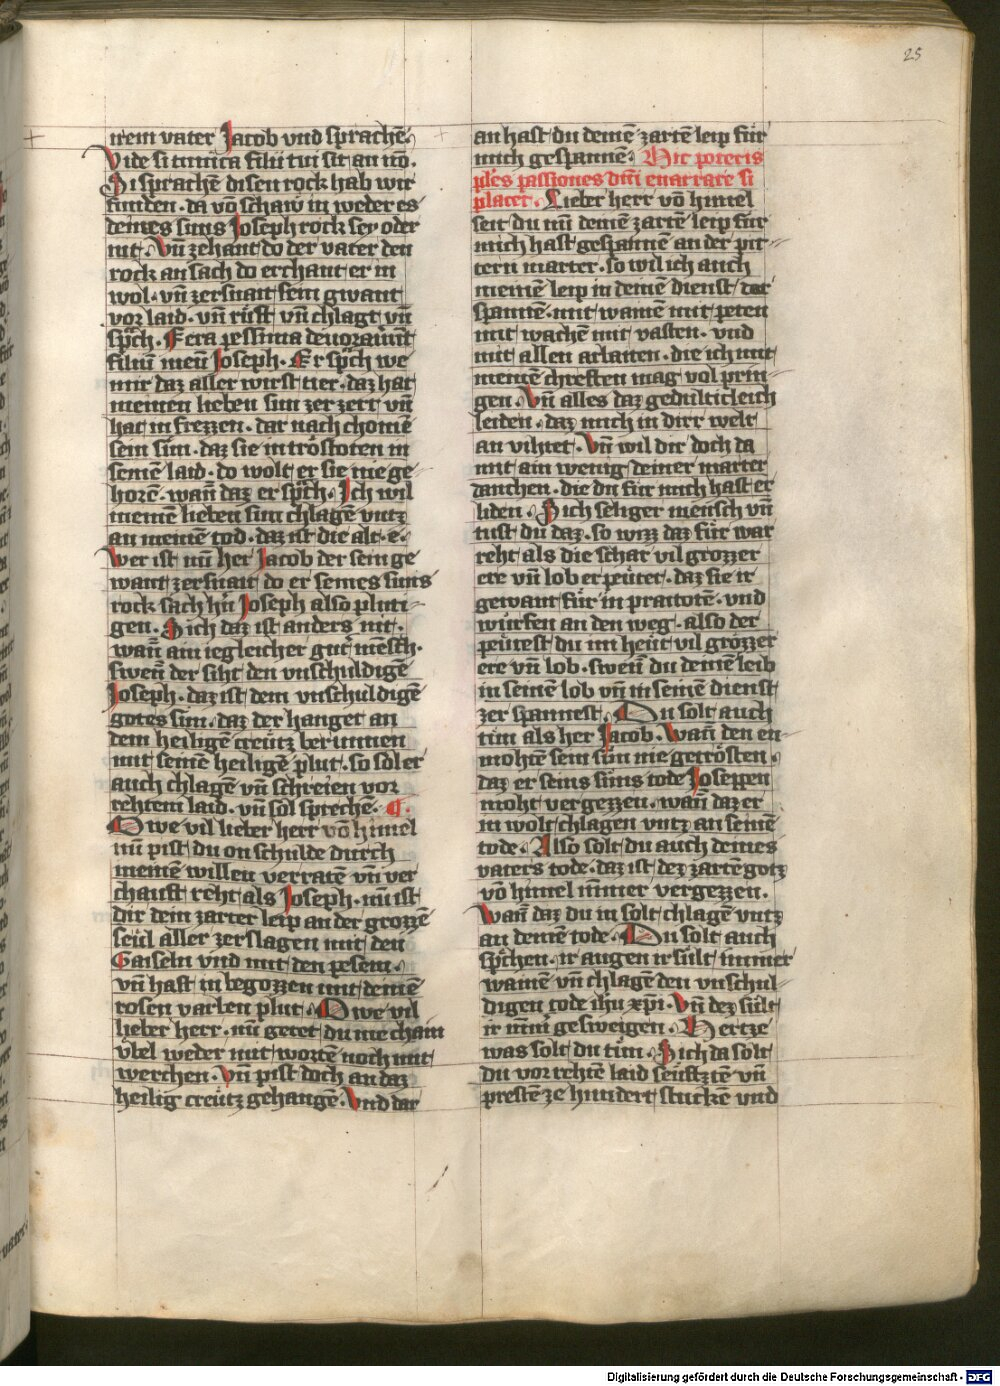 25
irem vater Jacob vnd sprachē.
Vide si tunica filii tui sit an nō.
Si sprachē disen rock hab wir
funden. da vō schaw in weder es
deines suns Joseph rock sey oder
nit. Vn̄ zehant do der vater den
rock an sach do erchant er in
wol. vn̄ zersnait sein gwant
vor laid. vn̄ rüfft vn̄ chlagt vn̄
spͣch. Fera pessima deuorauit
filiū meū Joseph. Er spͣch we
mir daz aller wirst tier. daz hat
meinen lieben sun zerzert vn̄
hat in frezzen. dar nach chomē
sein sün. daz sie in trösteten in
seinē laid. do wolt er sie nie ge
horē. wan̄ daz er spͣch. Ich wil
meinē lieben sun chlagē vntz
an meinē tod. daz ist die alt. e.
Wer ist nū her Jacob der sein ge
want zersnait do er seines suns
rock sach hn̄ Joseph also pluti
gen. Sich daz ist anders nit.
wan̄ ain iegleicher gut mēsch.
swen̄ der siht den vnschuldigē
Joseph. daz ist dem vnschuldigē
gotes sun. daz der hanget an
dem heiligē creütz berunnen
mit seinē heiligē plut. so sol er
auch chlagē vn̄ schreien vor
rehtem laid. vn̄ sol sprechē. ¶.
Owe vil lieber herr vō himel
nū pist du on schulde durch
meinē willen verratē vn̄ ver
chauft reht als Joseph. nū ist
dir dein zarter leip an der grozzē
seül aller zerslagen mit den
Gaiseln vnd mit den pesem.
vn̄ hast in begozzen mit deinē
rosen varben plut. Owe vil
lieber herr. nū getet du nie chain
vbel weder mit wortē noch mit
werchen. Vn̄ pist doch an daz
heilig creütz gehangē. Vnd dar
an hast du deinē zartē leip für
mich gespannē. Hic poteris
pl̄es passiones dn̄i enarrare si
placet. Lieber herr vō himel
seit du nū deinē zartē leip für
mich hast gespannē an der pit
tern marter. so wil ich auch
meinē leip in deinē dienst dar
spannē. mit wainē mit peten
mit wachē mit vasten. vnd
mit allen arbaiten. die ich mit
meinē chreften mag vol prin
gen. Vn̄ alles daz gedulticleich
leiden. daz mich in dirr welt
an vihtet. Vn̄ wil dir doch da
mit ain wenig deiner marter
danchen. die du für mich hast er
liden. Sich seliger mensch vn̄
tust du daz. so wizz daz für war
reht als die schar vil grozzer
ere vn̄ lob erpeütet. daz sie ir
gewant für in praitotē. vnd
würfen an den weg. also der
peütest du im heüt vil grözzer
ere vn̄ lob. swen̄ du deinē leib
in seinem lob vn̄ in seinē dienst
zer spannest. Du solt auch
tun als her Jacob. Wan̄ den en
mohtē sein sün nie getrösten.
daz er seins süns tode Joseppen
moht vergezzen. wan̄ daz er
in wolt chlagen vntz an seinē
tode. Also solt du auch deines
vaters tode. daz ist dez zartē gotz
vō himel nim̄er vergezzen.
Wan̄ daz du in solt chlagē vntz
an deinē tode. Du solt auch
spͣchen. ir augen ir sült immer
wainē vn̄ chlagē den vnschul
digen tode ihu xp̄i. Vn̄ dez sült
ir nim̄ gesweigen. Hertze
was solt du tün. Sich da solt
du vor rehtē laid seüftzē vn̄
prestē ze hundert stucken vnd
Digitalisierung gefördert durch die Deutsche Forschungsgemeinschaft - DFG